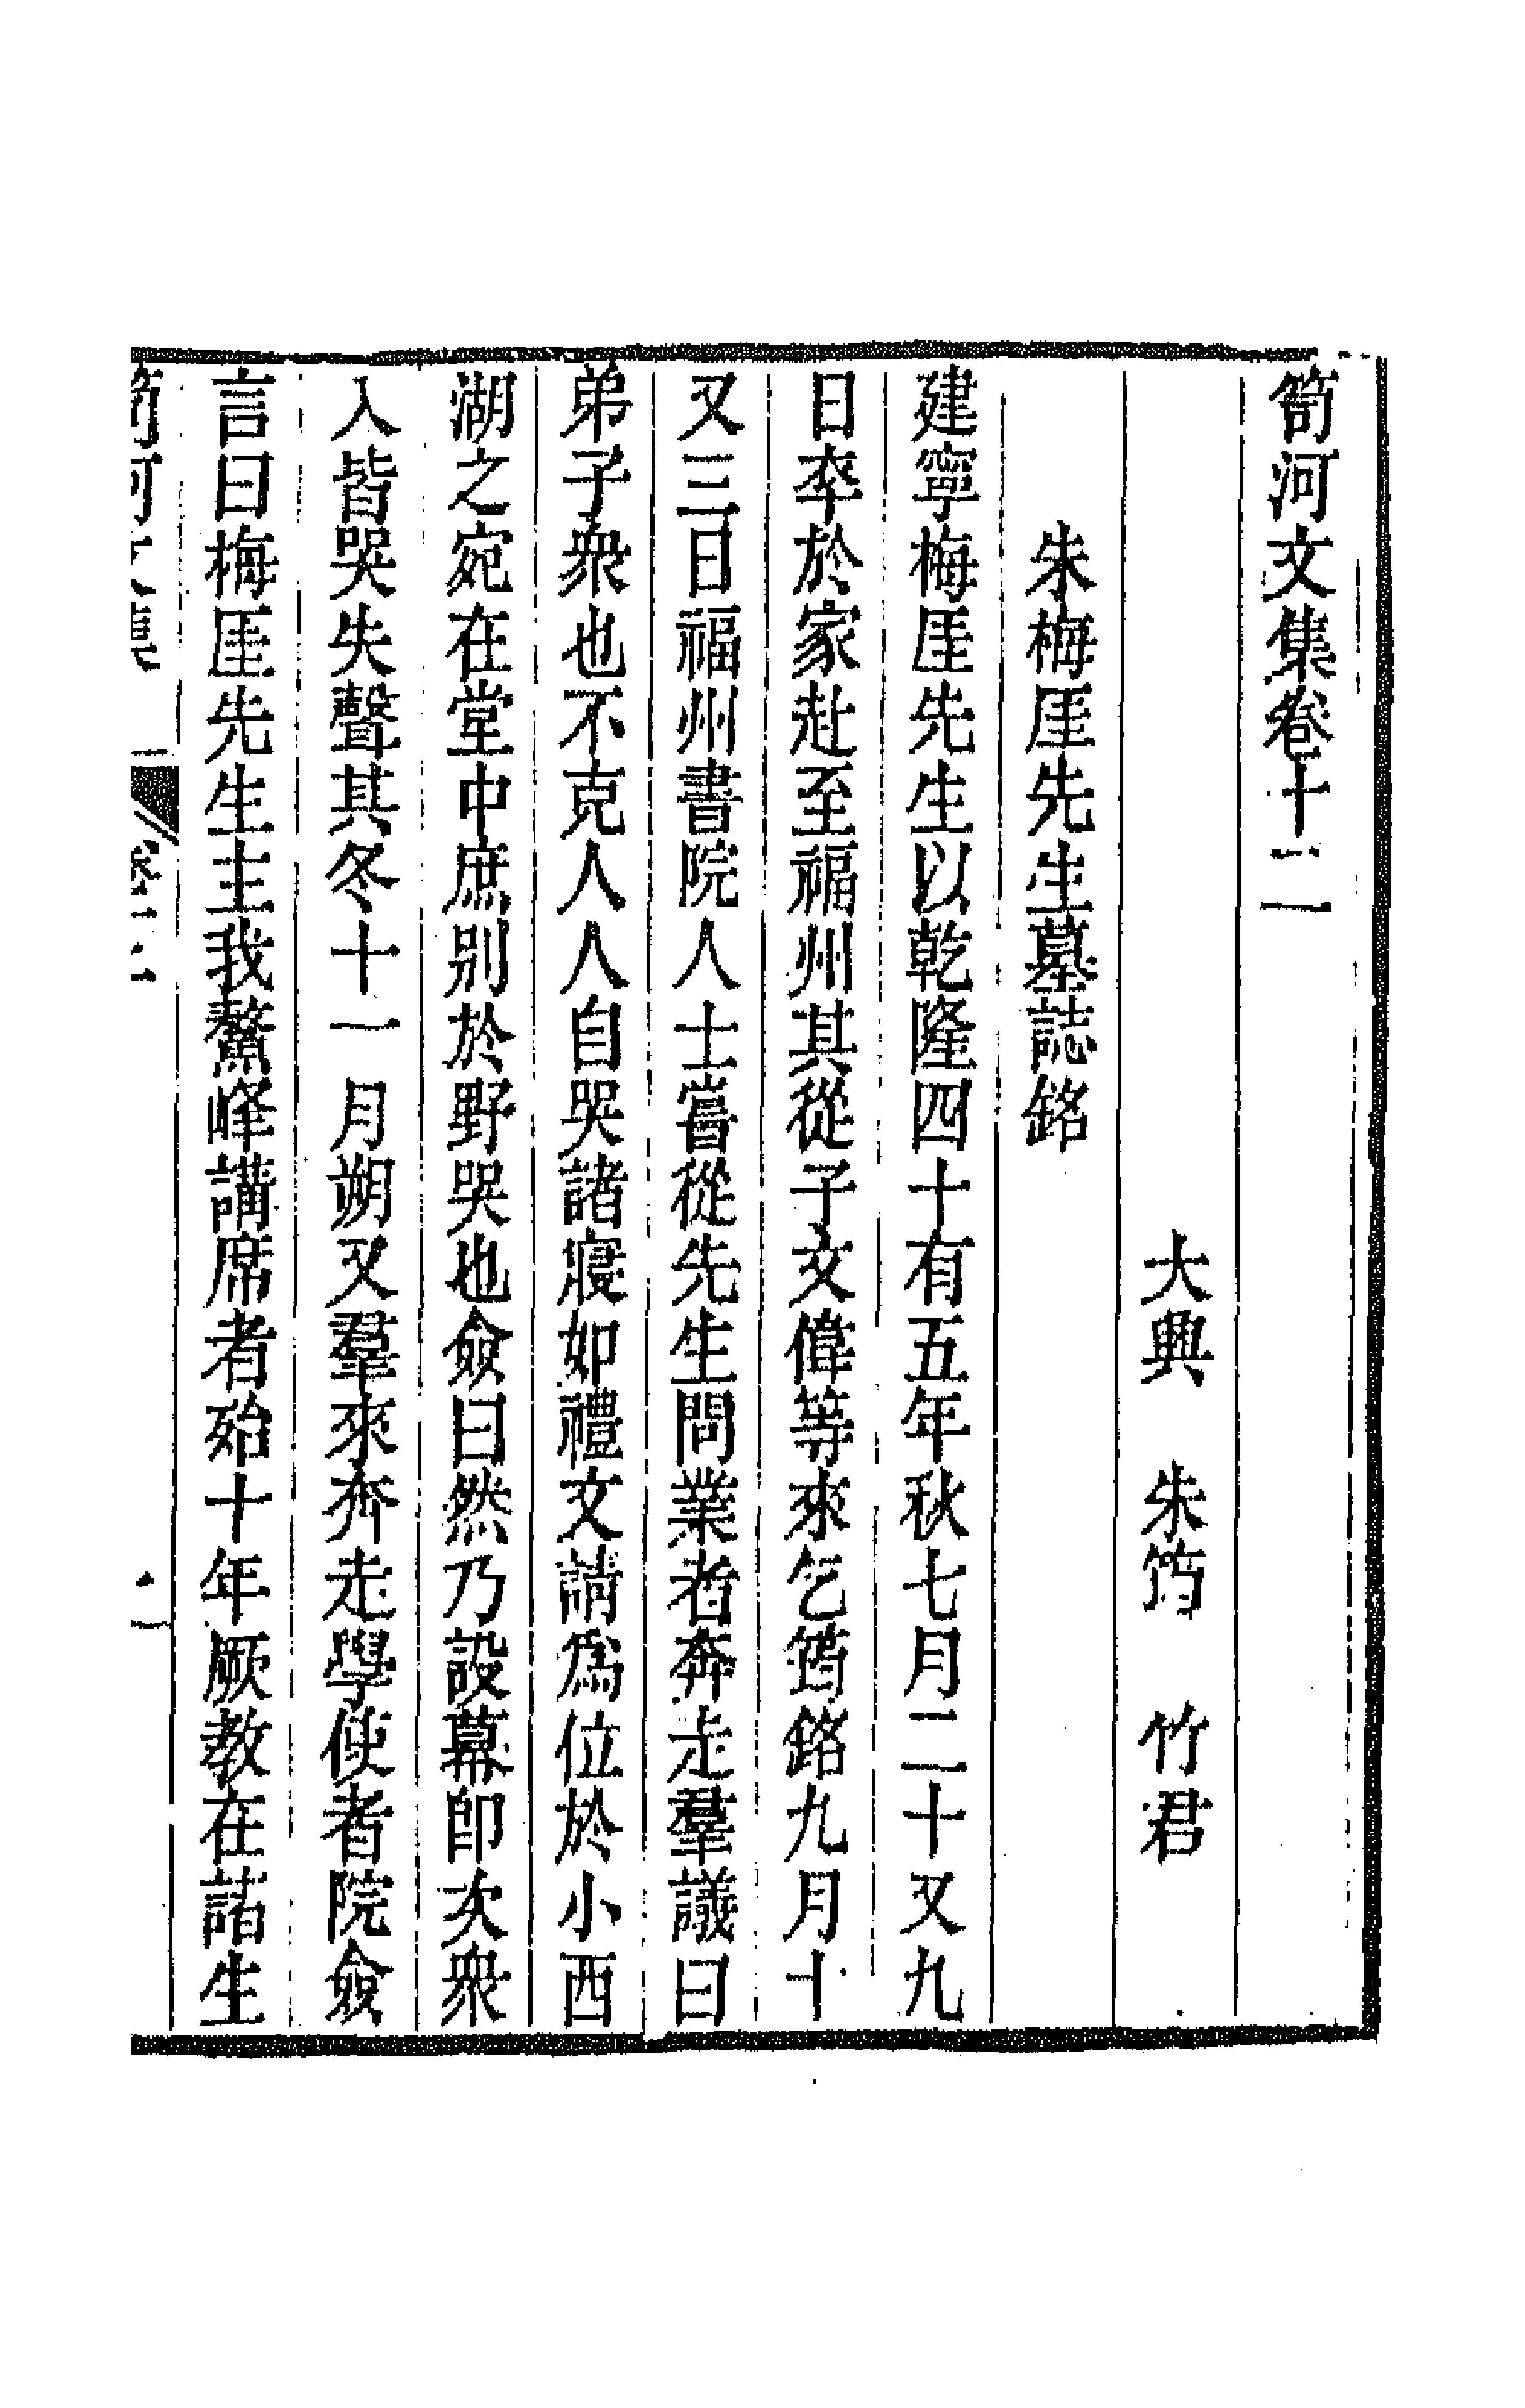 笥河文集卷十二
大興 朱筠 竹君
朱梅厓先生墓誌銘
建寧梅厓先生以乾隆四十有五年秋七月二十又九
日卒於家赴至福州其從子文偉等來乞筠銘九月十
又三日福州書院人士嘗從先生問業者奔走羣議曰
弟子衆也不克人人自哭諸寢如禮文請爲位於小西
湖之宛在堂中庶別於野哭也僉曰然乃設幕卽次衆
入皆哭失聲其冬十一月朔又羣來奔走學使者院僉
言曰梅厓先生主我鰲峰講席者殆十年厥教在諸生